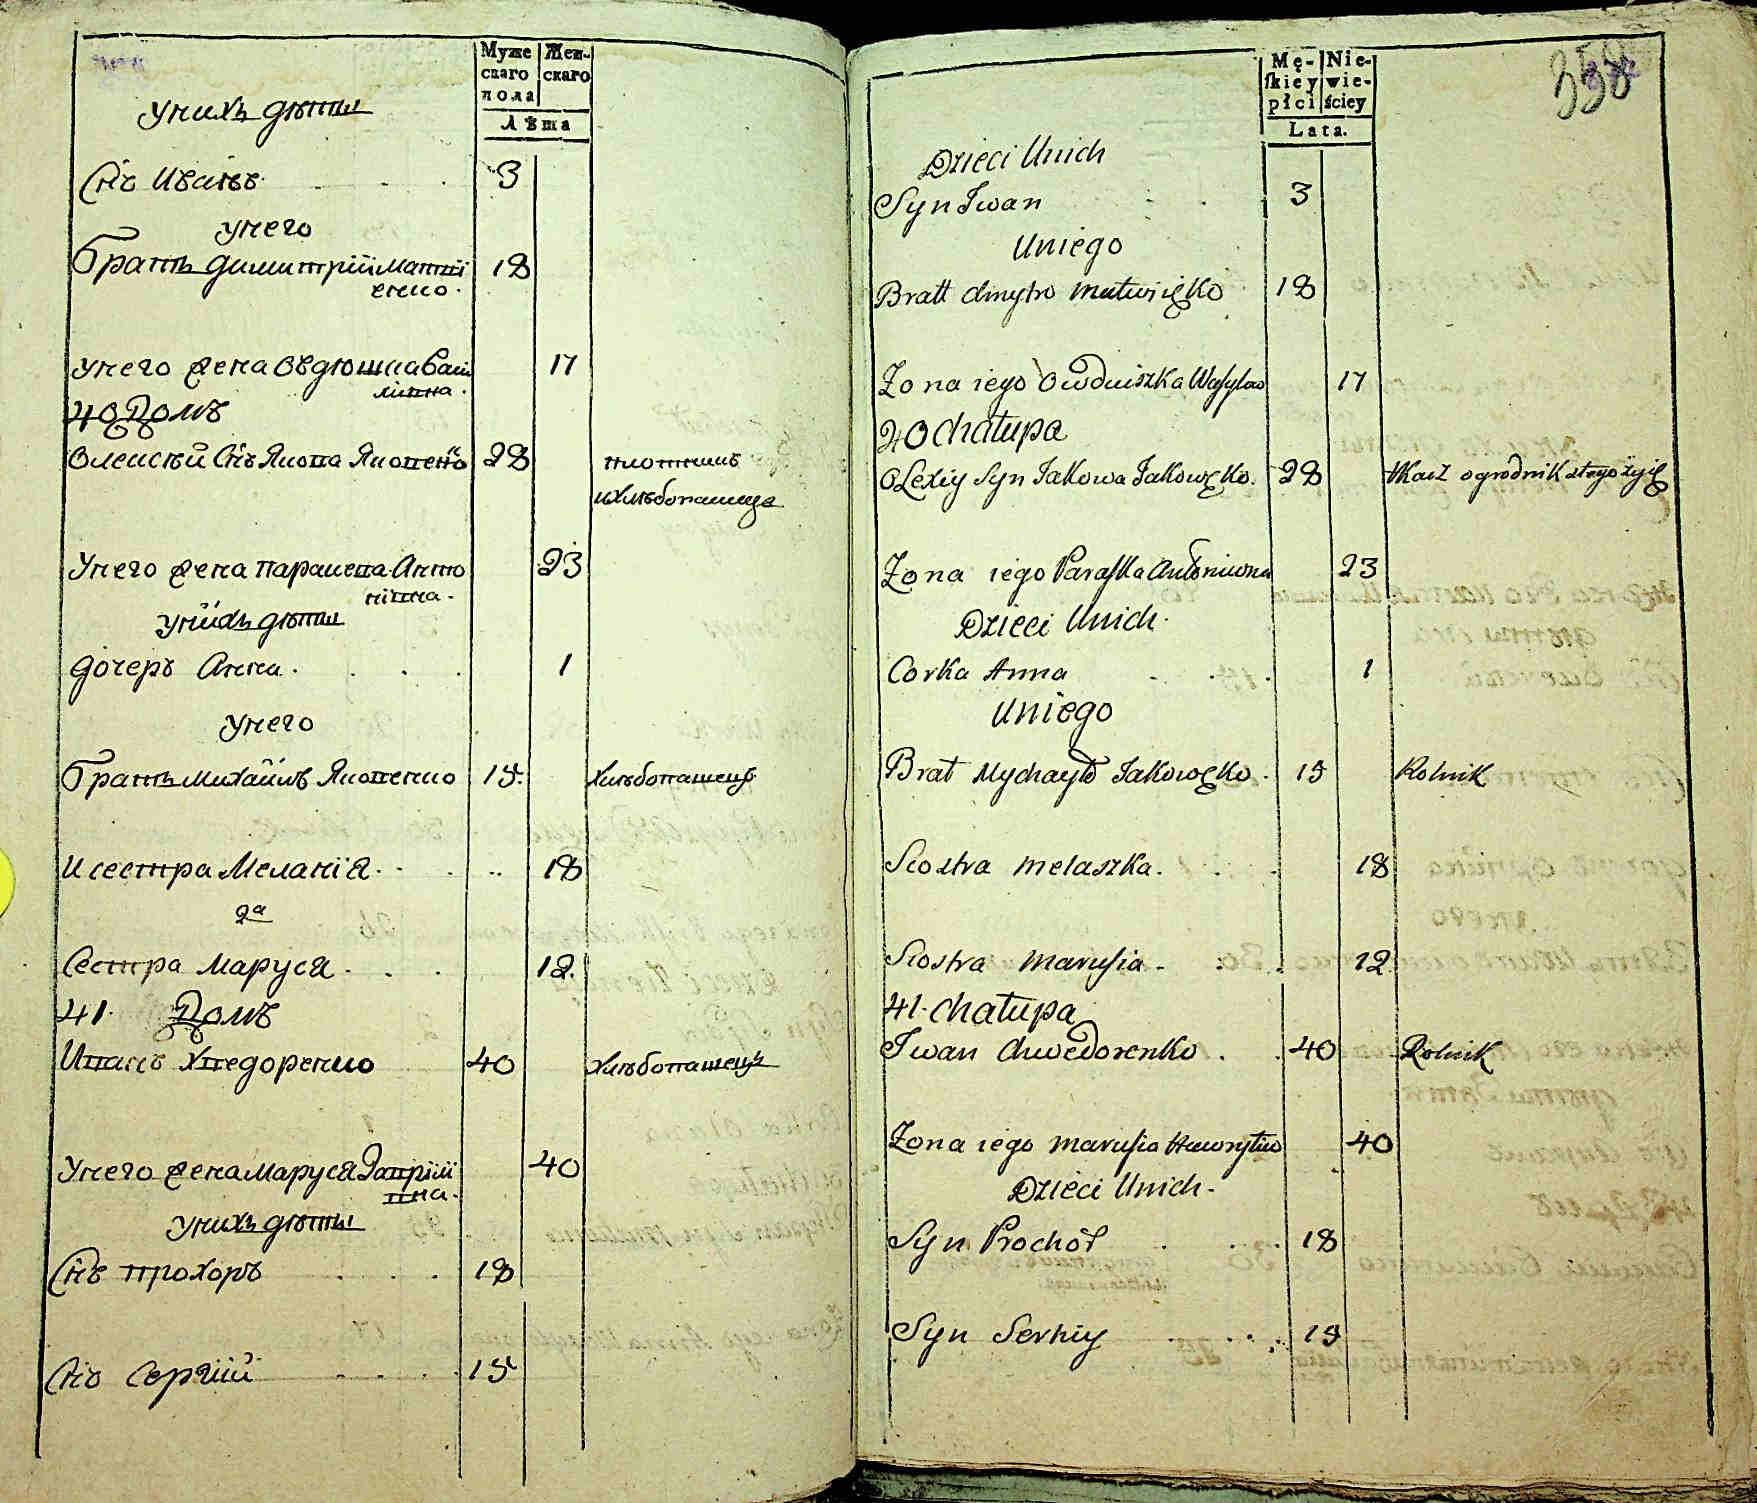 Муже Жен-
скаго скаго
пола
Лѣта
Унихъ дѣти
Снъ Иванъ 3
Унего
Братъ Димитрій Матвѣ 18
енко.
Унего жена Овдюшка Васи 17
лівна.
40 Домъ
Олексѣй Снъ Якова Яковенко 28 ткачъ
ихлѣбопашецъ
Унего жена Параскева Анто 23
нівна.
Унихъ дѣти
Дочеръ Анна. 1
Унего
Братъ Михайлъ Яковенко 15. Хлѣбопашецъ
И сестра Меланія 18
2а
Сестра Маруся 12.
41. Домъ
Иванъ Хведоренко 40 Хлѣбопашецъ
Унего жена Маруся Гаврілі 40
вна.
Унихъ дѣти
Снъ Прохоръ 18
Снъ Сергій 15
358
Mę- Nie-
skiey wie-
płci ściey
Lata.
Dzieci Unich
Syn Iwan 3
Uniego
Bratt dmytro Matwięko 18
Zona iego Owduiszka Wasylow 17
40 Chałupa
Olexiy Syn Jakowa Jakowęko. 28 tkacz ogrodnik stego żyię
Zona iego Paraska Antoniwna 23
Dzieci Unich.
Corka Anna 1
Uniego
Brat Mychayło Jakowęko. 15 Rolnik
Siostra Melaszka. 18
Siostra Marusia 12
41. Chałupa
Iwan Chwedorenko 40 Rolnik
Zona iego Marusia Hawryłiw 40
Dzieci Unich.
Syn Prochor 18
Syn Serhiy 15